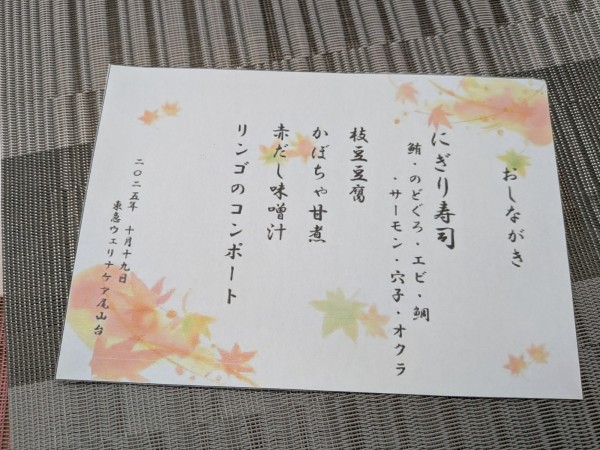 おしながき
にぎり寿司
鮪・のどぐろ・エビ・鯛
・サーモン・穴子・オクラ
枝豆豆腐
かぼちゃ甘煮
赤だし味噌汁
リンゴのコンポート
二〇二五年 十月十九日
東急ウエリナケア尾山台